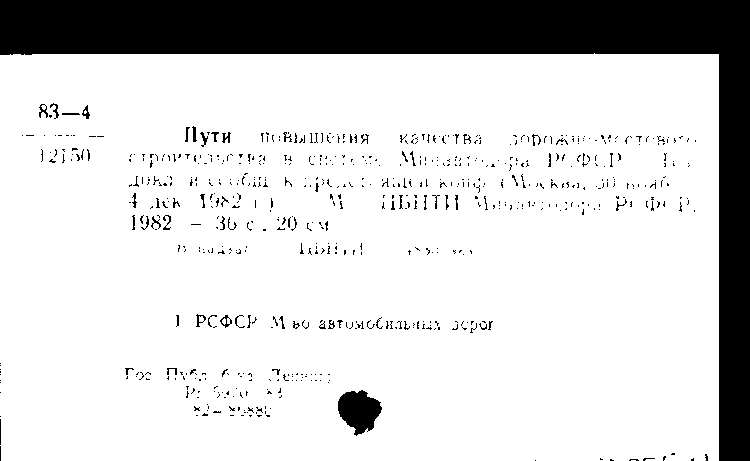 83—4
12150
Пути повышения качества дорожно-мостового
строительства в системе Минавтодора РСФСР
докл. и сообщ. к предстоящей конф. (Москва, 30 нояб.
4 дек. 1982 г.) М. ЦБНТИ Минавтодора РСФСР,
1982 — 36 с., 20 см
ЦБНТИ
1 РСФСР М-во автомобильных дорог
Гос. Публ. б-ка Ленингр.